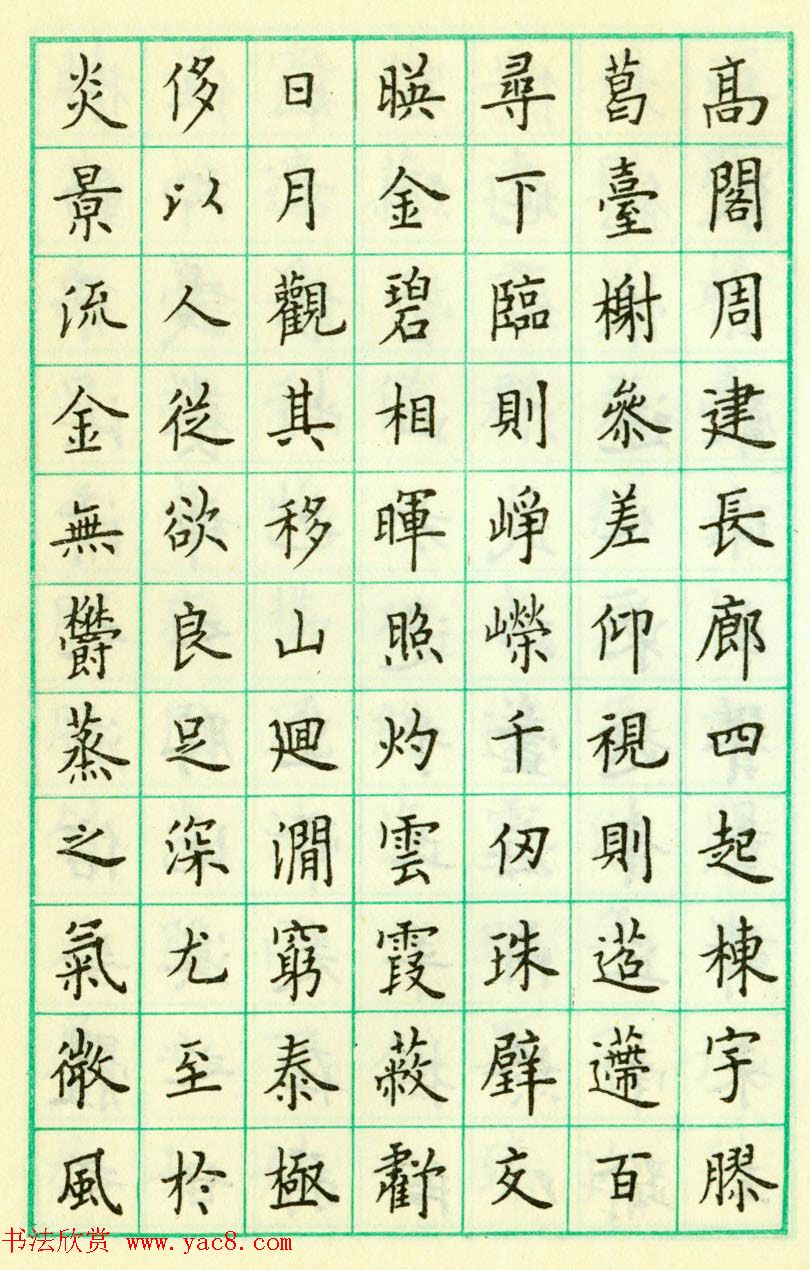 高閣周建長廊四起棟宇膠
葛臺榭叅差仰視則迢遰百
尋下臨則崢嶸千仞珠壁交
暎金碧相暉照灼雲霞蔽虧
日月觀其移山迴澗窮泰極
侈以人從欲良足深尤至於
炎景流金無欝蒸之氣微風
书法欣赏 www.yac8.com